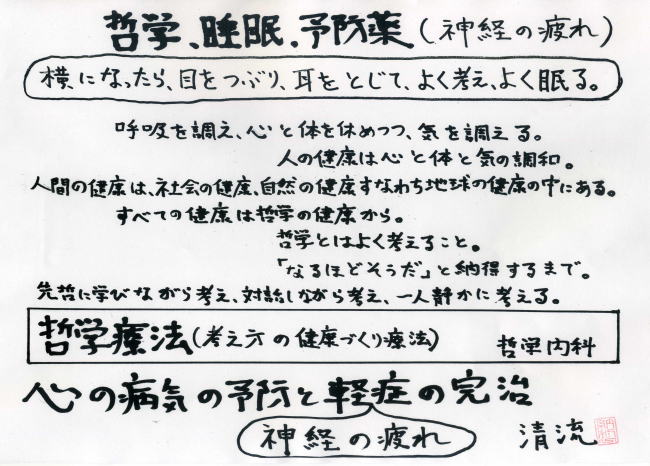 哲学、睡眠、予防薬（神経の疲れ）
横になったら、目をつぶり、耳をとじて、よく考え、よく眠る。
呼吸を調え、心と体を休めつつ、気を調える。
人の健康は心と体と気の調和。
人間の健康は、社会の健康、自然の健康すなわち地球の健康の中にある。
すべての健康は哲学の健康から。
哲学とはよく考えること。
「なるほどそうだ」と納得するまで。
先哲に学びながら考え、対話しながら考え、一人静かに考える。
哲学療法（考え方の健康づくり療法） 哲学内科
心の病気の予防と軽症の完治
神経の疲れ 清流